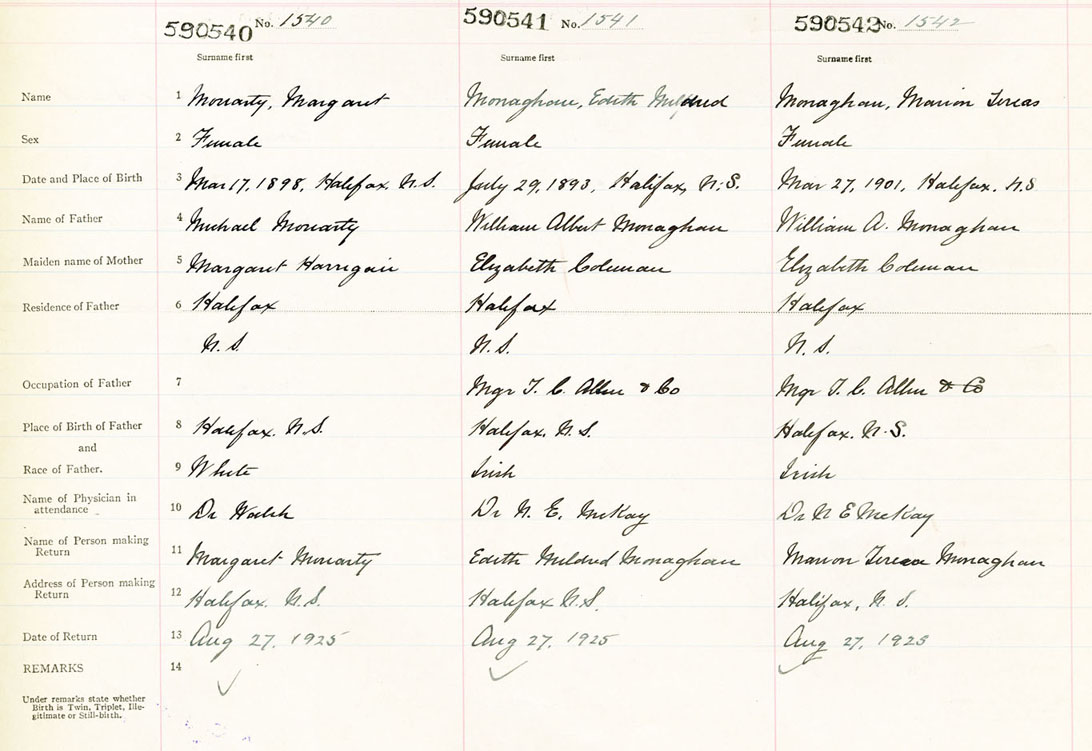 590540 No. 1540 590541 No. 1541 590542 No. 1542
Surname first Surname first Surname first
Name 1 Moriarty, Margaret Monaghan, Edith Mildred Monaghan, Marion Tereas
Sex 2 Female Female Female
Date and Place of Birth 3 Mar 17, 1898, Halifax, N.S. July 29, 1893, Halifax, N.S. Mar 27, 1901, Halifax, N.S
Name of Father 4 Michael Moriarty William Albert Monaghan William A. Monaghan
Maiden name of Mother 5 Margaret Harrigan Elizabeth Coleman Elizabeth Coleman
Residence of Father 6 Halifax Halifax Halifax
N.S. N.S. N.S.
Occupation of Father 7 Mgr T. C. Allen & Co Mgr T. C. Allen & Co
Place of Birth of Father 8 Halifax. N.S. Halifax, N.S. Halifax. N.S.
and
Race of Father. 9 White Irish Irish
Name of Physician in
attendance 10 Dr Walsh Dr N. E. McKay Dr N E McKay
Name of Person making
Return 11 Margaret Moriarty Edith Mildred Monaghan Marion Teresa Monaghan
Address of Person making
Return 12 Halifax. N.S. Halifax N.S. Halifax, N.S.
Date of Return 13 Aug 27, 1925 Aug 27, 1925 Aug 27, 1925
REMARKS 14
Under remarks state whether
Birth is Twin, Triplet, Ille-
gitimate or Still-birth.